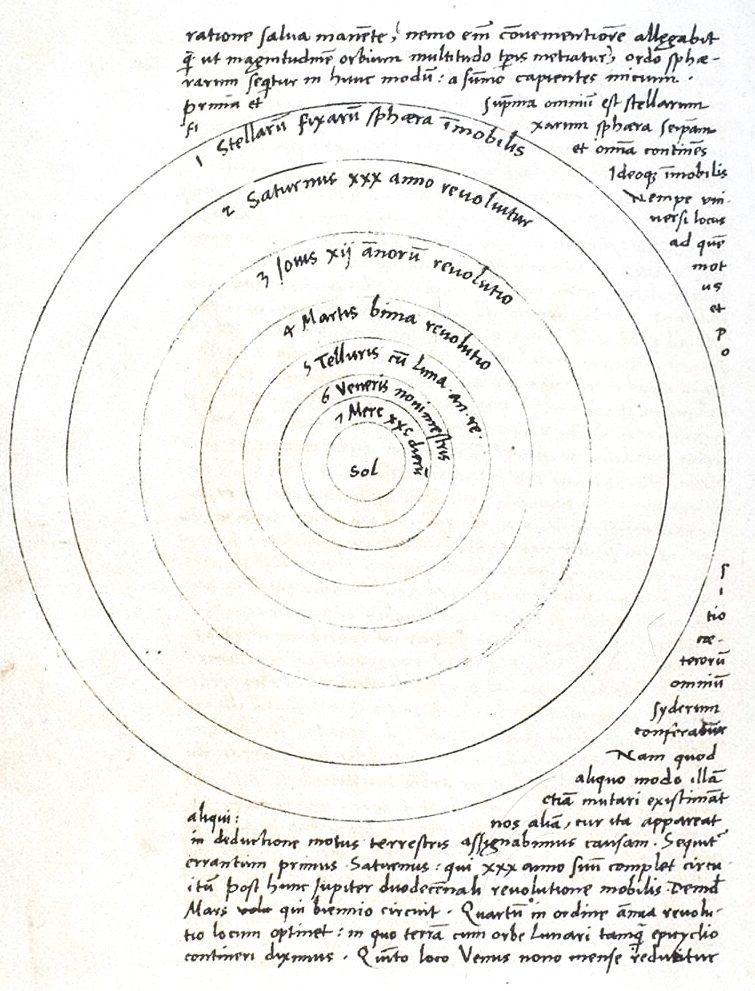 ratione salva manēte, nemo em̄ cōvenientiorē allegabit
q̄ ut magnitudinē orbium multitudo tp̄is metiatur, ordo sphæ-
rarum seq̄tur in hunc modū: a sūmo capientes initium.
prima et suprema omniū est stellarum
fixarum sphæra seipsam
et omīa continēs
Ideoqȝ īmobilis
Nempe uni-
versi locus
ad quē
mot
us
et
p
o
s
i
tio
cæ-
terorū
omniū
syderum
conferatur
Nam quod
aliquo modo illā
etiā mutari existimāt
aliqui: nos aliā, cur ita appareat
in deductione motus terrestris assignabimus causam. Sequitur
errantium primus Saturnus: qui xxx anno suū complet circu-
itū post hunc Jupiter duodecennali revolutione mobilis. Deinde
Mars qui biennio circuit. Quartū in ordine ānua revolu-
tio locum optinet: in quo terrā cum orbe Lunari tamq̄ epicyclio
contineri diximus. Quīto loco Venus nono mense reducitur
1 Stellarū fixarū sphæra īmobilis
2 Saturnus xxx anno revolvitur
3 Jovis xij ānorū revolutio
4 Martis bima revolutio
5 Telluris cū Luna an. re.
6 Veneris nonimestris
7 Merc xxc dierū
Sol